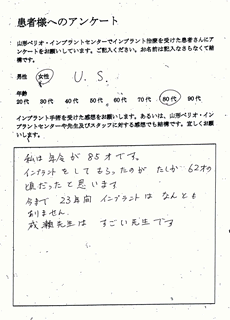 患者様へのアンケート
山形ペリオ・インプラントセンターでインプラント治療を受けた患者さんにア
ンケートをお願いしています。ご記入ください。お名前は記入なさらなくて結
構です。
男性 女性 U.S.
年齢
20代 30代 40代 50代 60代 70代 80代 90代
インプラント手術を受けた感想をお願いします。あるいは、山形ペリオ・イン
プラントセンターや先生及びスタッフに対する感想でも結構です。宜しくお願
いします。
私は年令が85才です。
インプラントをしてもらったのがたしか62才の
頃だったと思います
今まで23年間インプラントはなんとも
ありません.
成瀬先生はすごい先生です